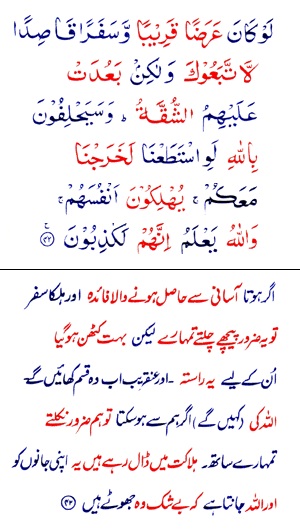 لَوْ كَانَ عَرَضًا قَرِيْبًا وَّسَفَرًا قَاصِدًا
لَّاتَّبَعُوْكَ وَلٰكِنْۢ بَعُدَتْ
عَلَيْهِمُ الشُّقَّةُ ؕ وَسَيَحْلِفُوْنَ
بِاللّٰهِ لَوِ اسْتَطَعْنَا لَخَرَجْنَا
مَعَكُمْ ۚ يُهْلِكُوْنَ اَنْفُسَهُمْ ۚ
وَاللّٰهُ يَعْلَمُ اِنَّهُمْ لَكٰذِبُوْنَ ﴿۴۲﴾
اگر ہوتا آسانی سے حاصل ہونے والا فائدہ اور ہلکا سفر
تو یہ ضرور پیچھے چلتے تمہارے لیکن بہت کٹھن ہو گیا
اُن کے لیے یہ راستہ ۔ اور عنقریب اب وہ قسم کھائیں گے
اللہ کی (کہیں گے) اگر ہم سے ہو سکتا تو ہم ضرور نکلتے
تمہارے ساتھ۔ ہلاکت میں ڈال رہے ہیں یہ اپنی جانوں کو
اور اللہ جانتا ہے کہ بے شک وہ جھوٹے ہیں ﴿۴۲﴾